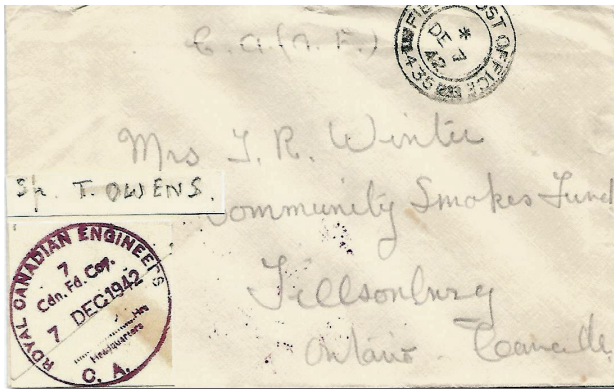 C.A.(A.F.)
FIELD POST OFFICE
*
DE 7
42
435
Mrs J. R. Winter
Spr. T. OWENS.
Community Smokes Fund
Tillsonburg
Ontario. Canada
ROYAL CANADIAN ENGINEERS
7
Cdn. Fd. Coy.
7 DEC 1942
Hrs
Headquarters
C. A.